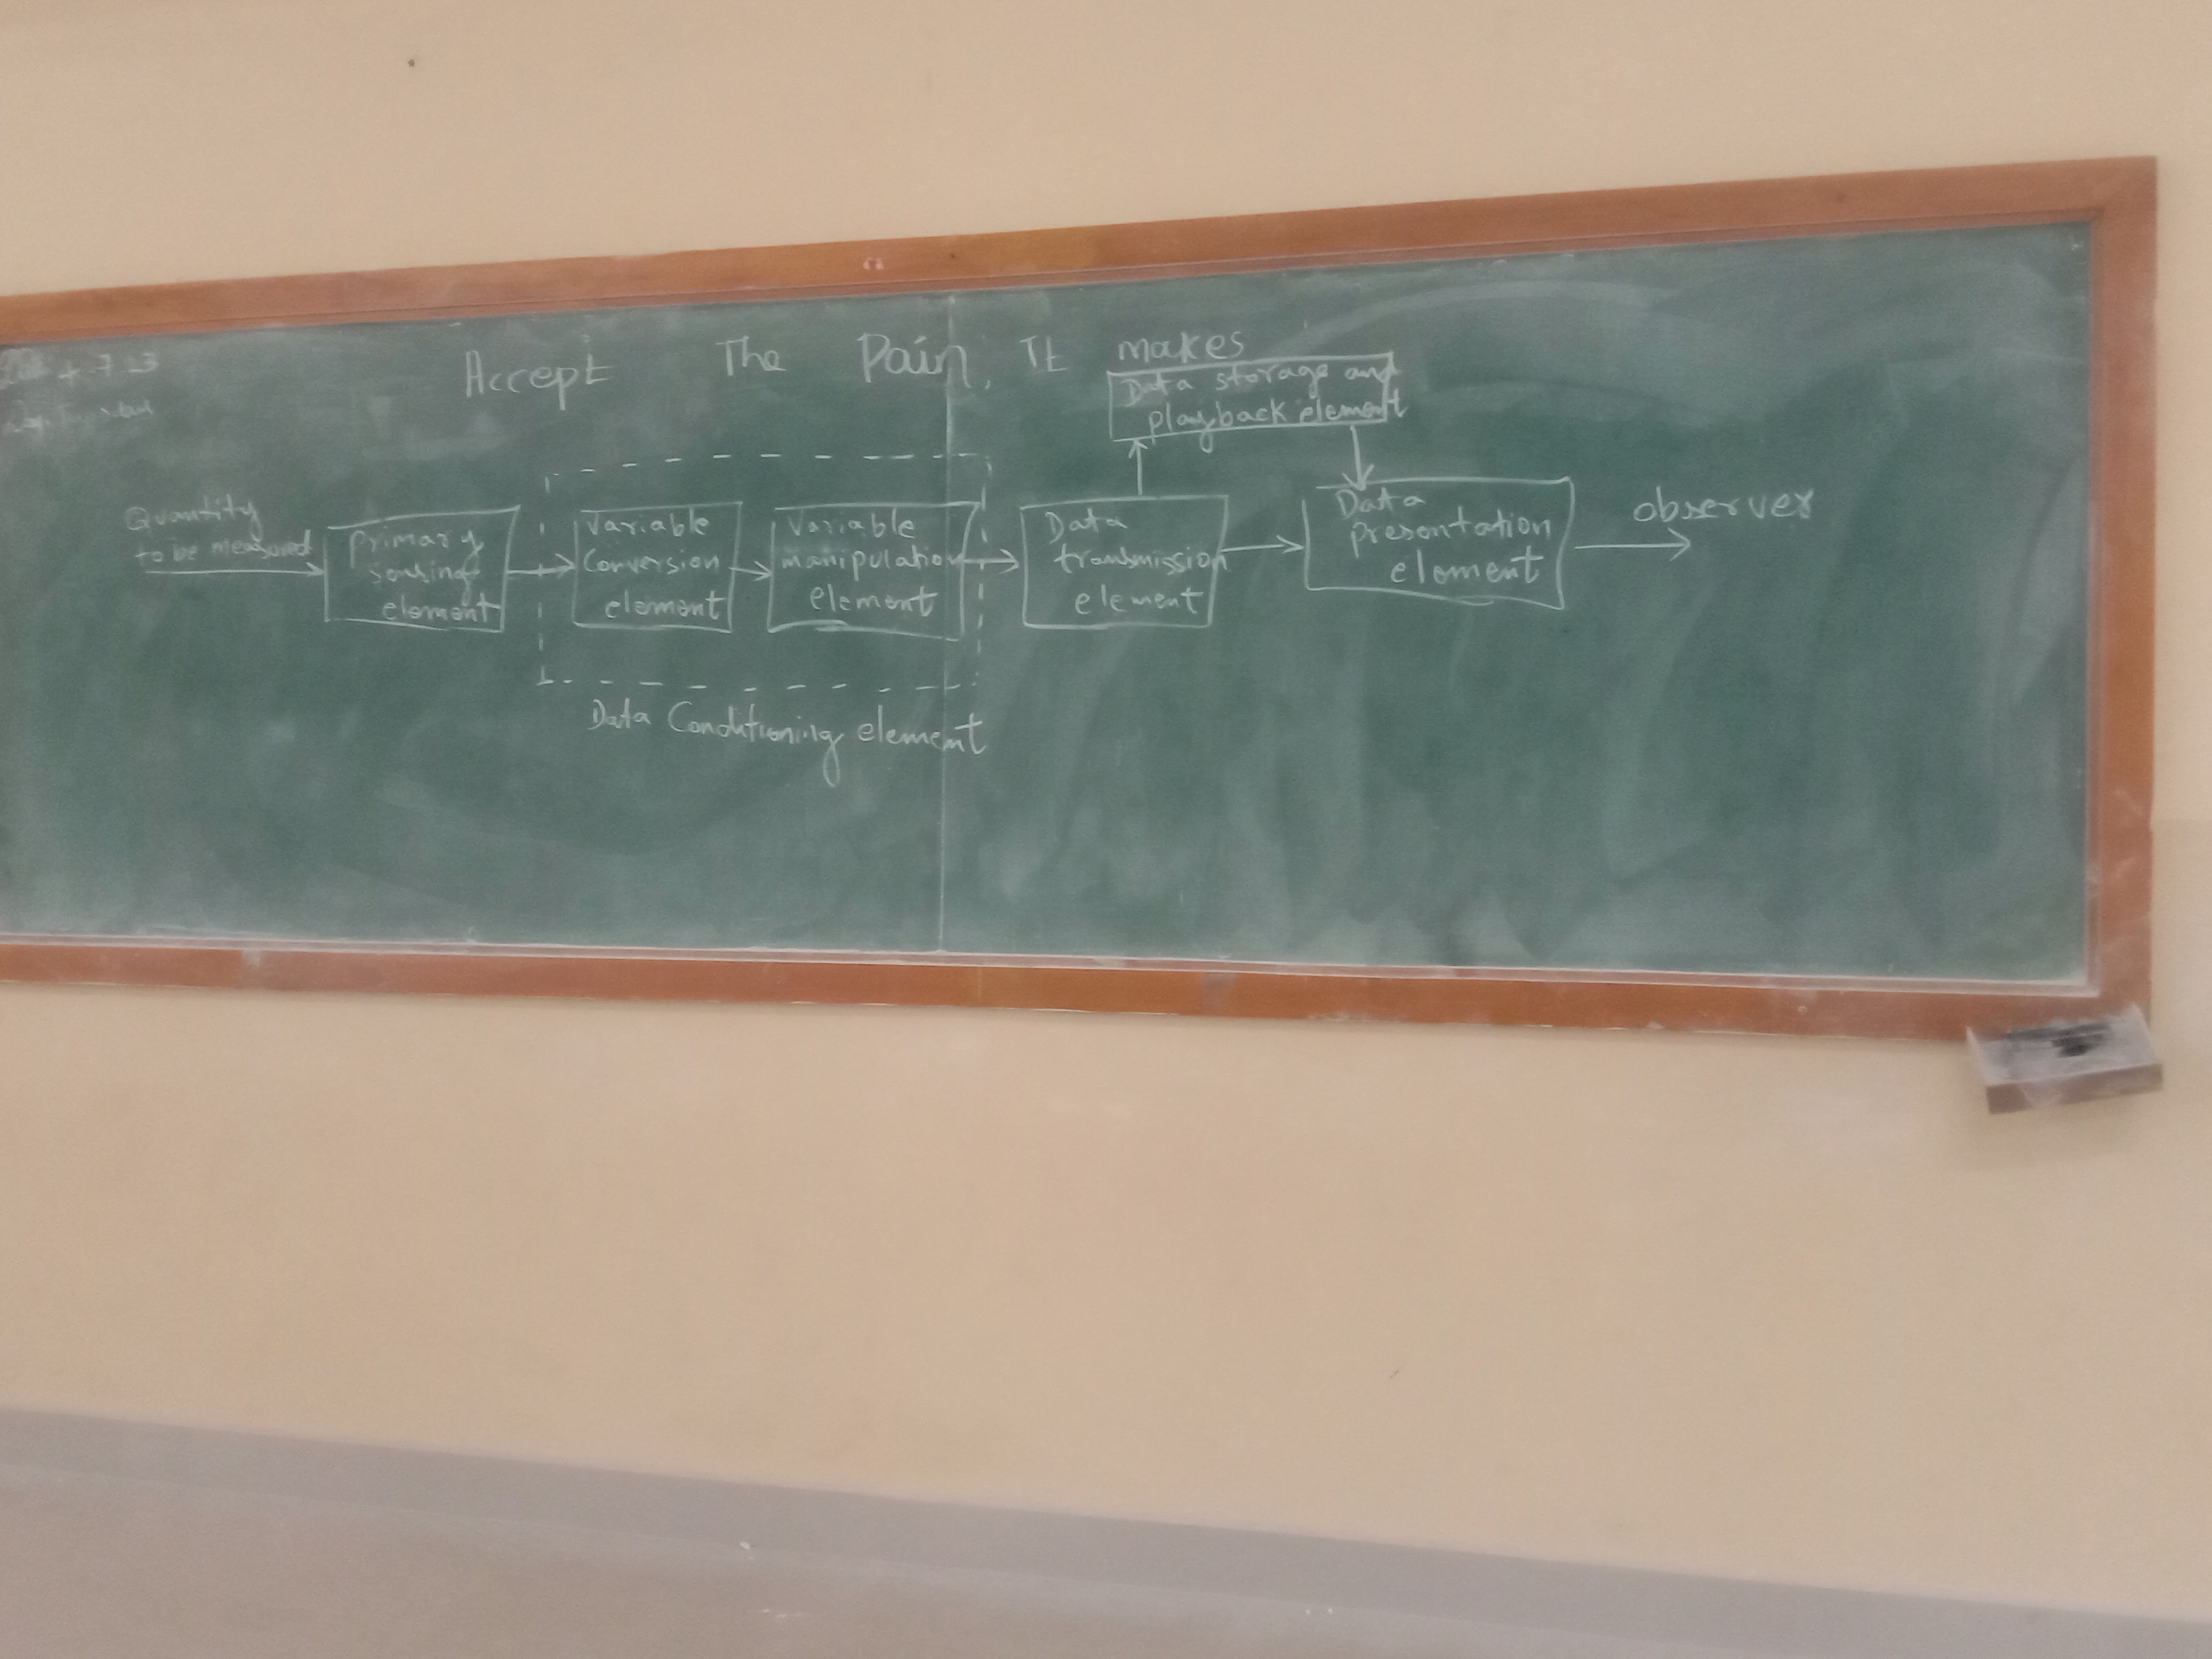 Accept The Pain, It makes
Data storage and
playback element
Quantity
to be measured
Primary
sensing
element
Variable
Conversion
element
Variable
manipulation
element
Data
transmission
element
Data
presentation
element
observer
Data Conditioning element